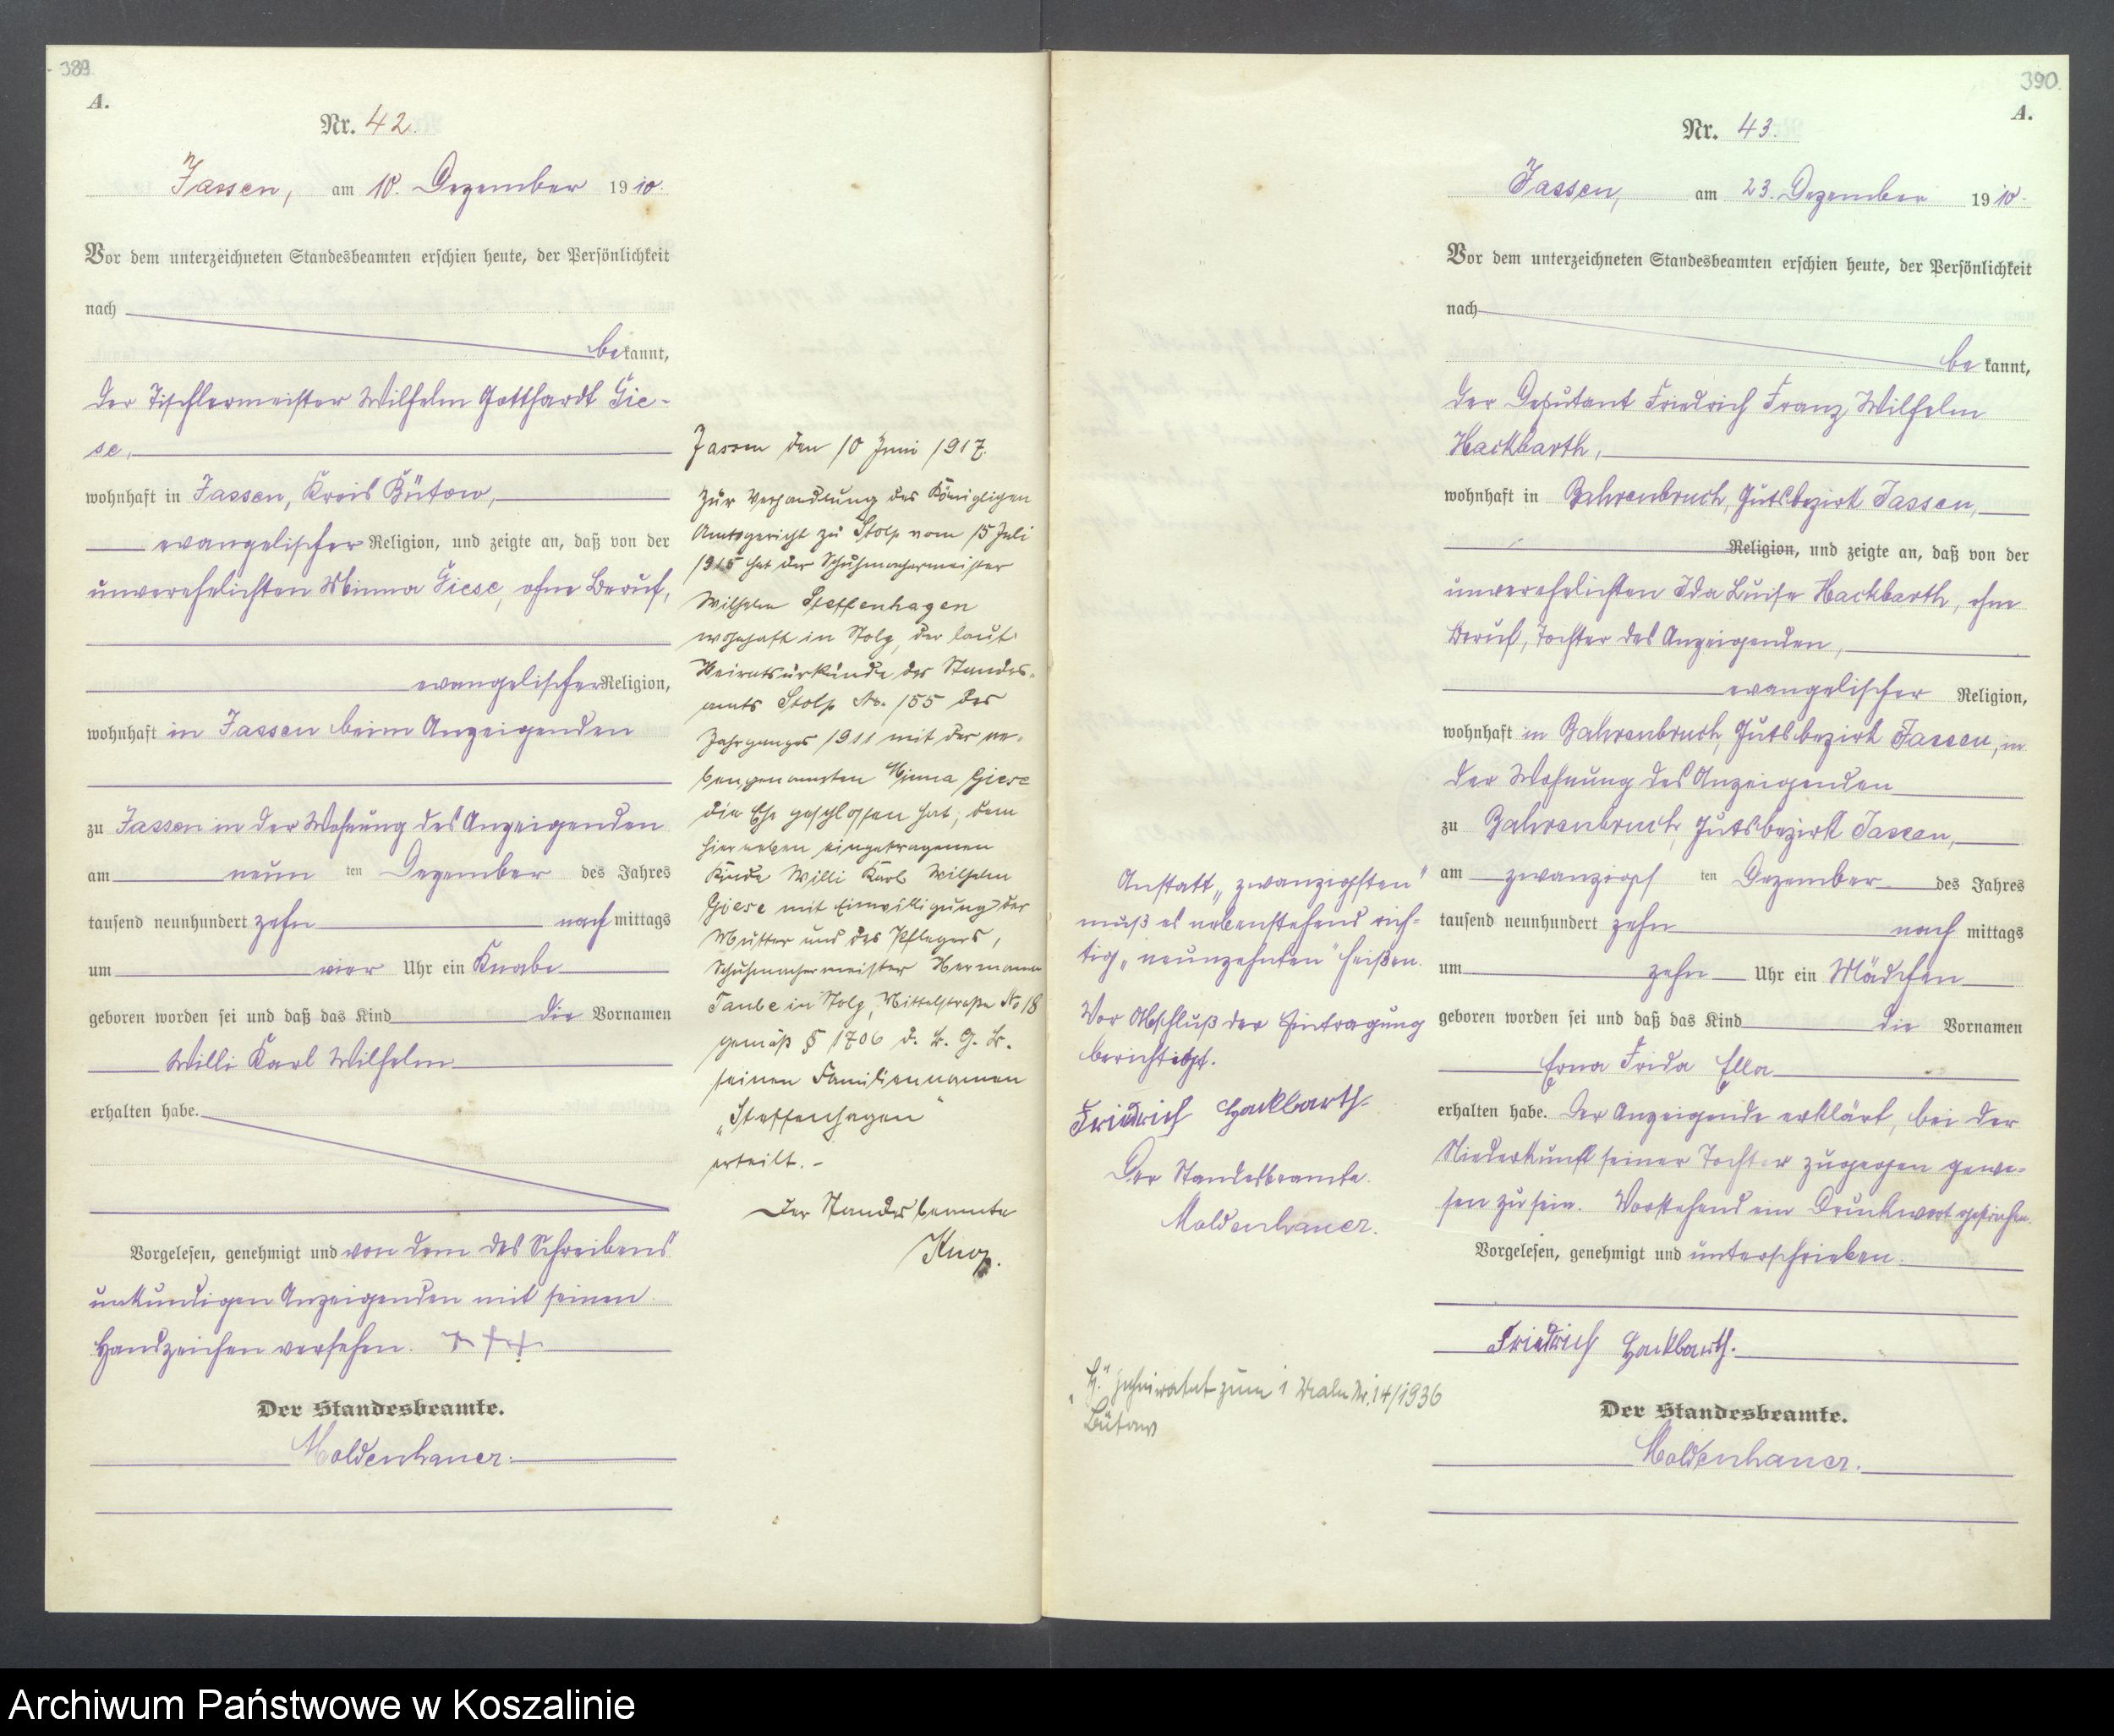 389.
A.
Nr. 42.
Jassen, am 10. Dezember 1910.
Vor dem unterzeichneten Standesbeamten erschien heute, der Persönlichkeit
nach
bekannt,
der Tischlermeister Wilhelm Gotthardt Gie-
se,
wohnhaft in Jassen, Kreis Bütow,
evangelischer Religion, und zeigte an, daß von der
unverehelichten Minna Giese, ohne Beruf,
evangelischer Religion,
wohnhaft in Jassen beim Anzeigenden
zu Jassen in der Wohnung des Anzeigenden
am neun ten Dezember des Jahres
tausend neunhundert zehn nach mittags
um vier Uhr ein Knabe
geboren worden sei und daß das Kind die Vornamen
Willi Karl Wilhelm
erhalten habe.
Vorgelesen, genehmigt und von dem des Schreibens
unkundigen Anzeigenden mit seinem
Handzeichen versehen. +++
Der Standesbeamte.
Moldenhauer.
Jassen den 10 Juni 1917.
Zur Verhandlung des Königlichen
Amtsgericht zu Stolp vom 15 Juli
1915 hat der Schuhmachermeister
Wilhelm Steffenhagen
wohnhaft in Stolp, der laut
Heiratsurkunde des Standes-
amts Stolp No. 155 des
Jahrganges 1911 mit der ne-
bengenannten Minna Giese
die Ehe geschlossen hat, dem
hierneben eingetragenen
Kinde Willi Karl Wilhelm
Giese mit Einwilligung der
Mutter und des Pflegers,
Schuhmachermeister Hermann
Taube in Stolp, Mittelstraße No 18
gemäß § 1706 d. B. G. B.
seinen Familiennamen
„Steffenhagen"
erteilt. -
Der Standesbeamte
Knop.
390.
A.
Nr. 43.
Jassen, am 23. Dezember 1910.
Vor dem unterzeichneten Standesbeamten erschien heute, der Persönlichkeit
nach
bekannt,
der Deputant Friedrich Franz Wilhelm
Hackbarth,
wohnhaft in Bahrenbruch, Gutsbezirk Jassen,
Religion, und zeigte an, daß von der
unverehelichten Ida Luise Hackbarth, ohne
Beruf, Tochter des Anzeigenden,
evangelischer Religion,
wohnhaft in Bahrenbruch, Gutsbezirk Jassen, in
der Wohnung des Anzeigenden
zu Bahrenbruch, Gutsbezirk Jassen,
am zwanzigs ten Dezember des Jahres
tausend neunhundert zehn nach mittags
um zehn Uhr ein Mädchen
geboren worden sei und daß das Kind die Vornamen
Erna Frida Ella
erhalten habe. Der Anzeigende erklärt, bei der
Niederkunft seiner Tochter zugegen gewe-
sen zu sein. Vorstehend ein Druckwort gestrichen.
Vorgelesen, genehmigt und unterschrieben.
Friedrich Hackbarth.
Der Standesbeamte.
Moldenhauer.
Anstatt „zwanzigsten"
muß es nebenstehend rich-
tig „neunzehnten" heißen.
Vor Abschluß der Eintragung
berichtigt.
Friedrich Hackbarth.
Der Standesbeamte.
Moldenhauer.
„H." geheiratet zum 1 Male Nr. 14/1936
Bütow
Archiwum Państwowe w Koszalinie